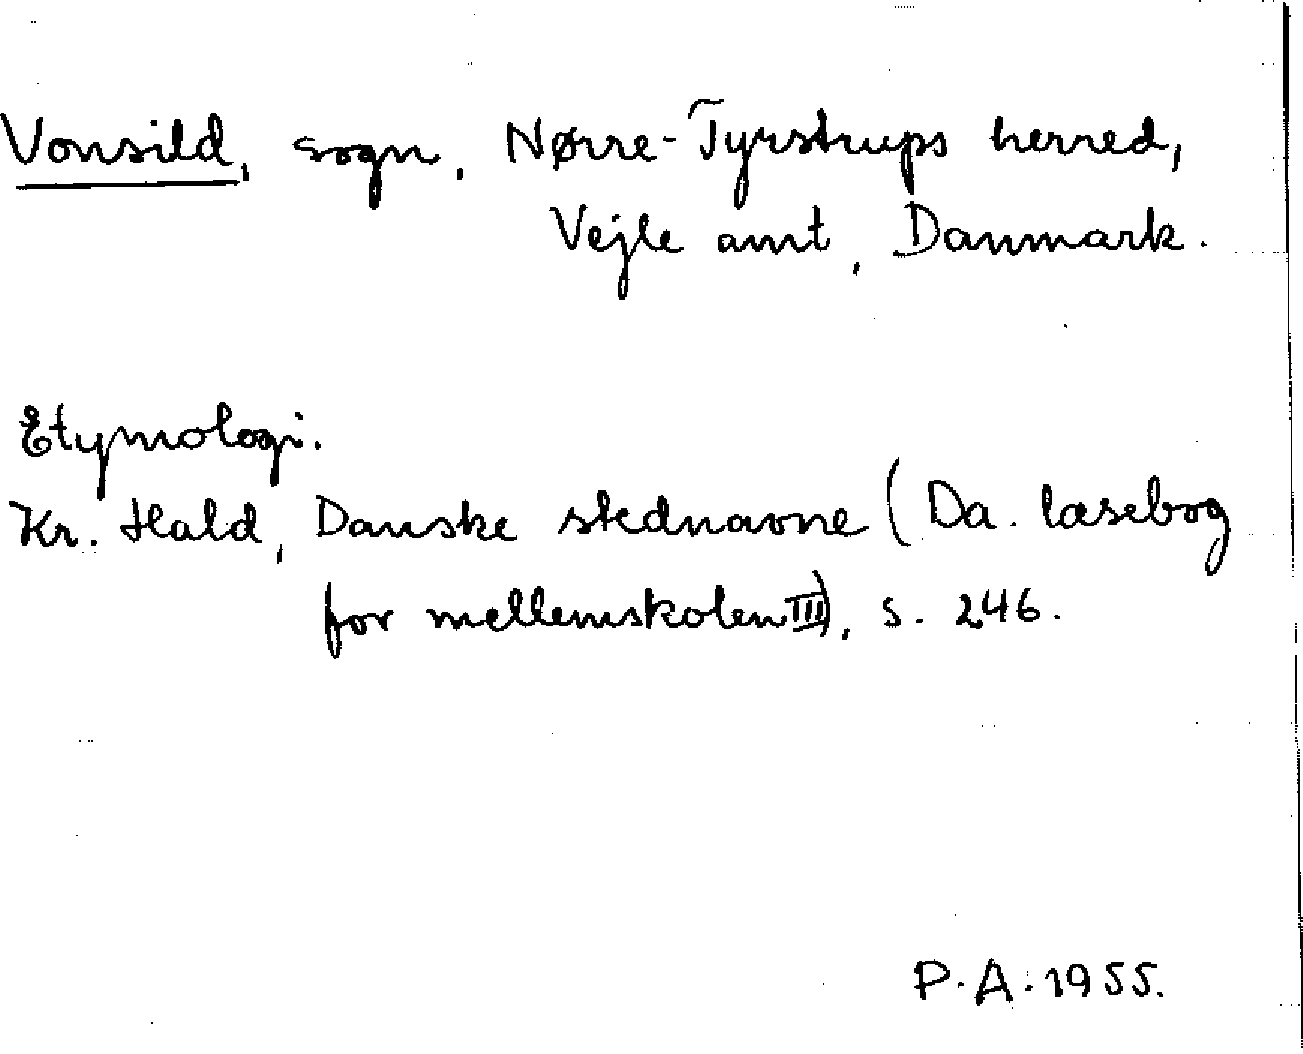 Vonsild, sogn, Nørre-Tyrstrups herred,
Vejle amt, Danmark.
Etymologi.
Kr. Hald, Danske stednavne (Da. læsebog
for mellemskolen III), s. 246.
P.A. 1955.